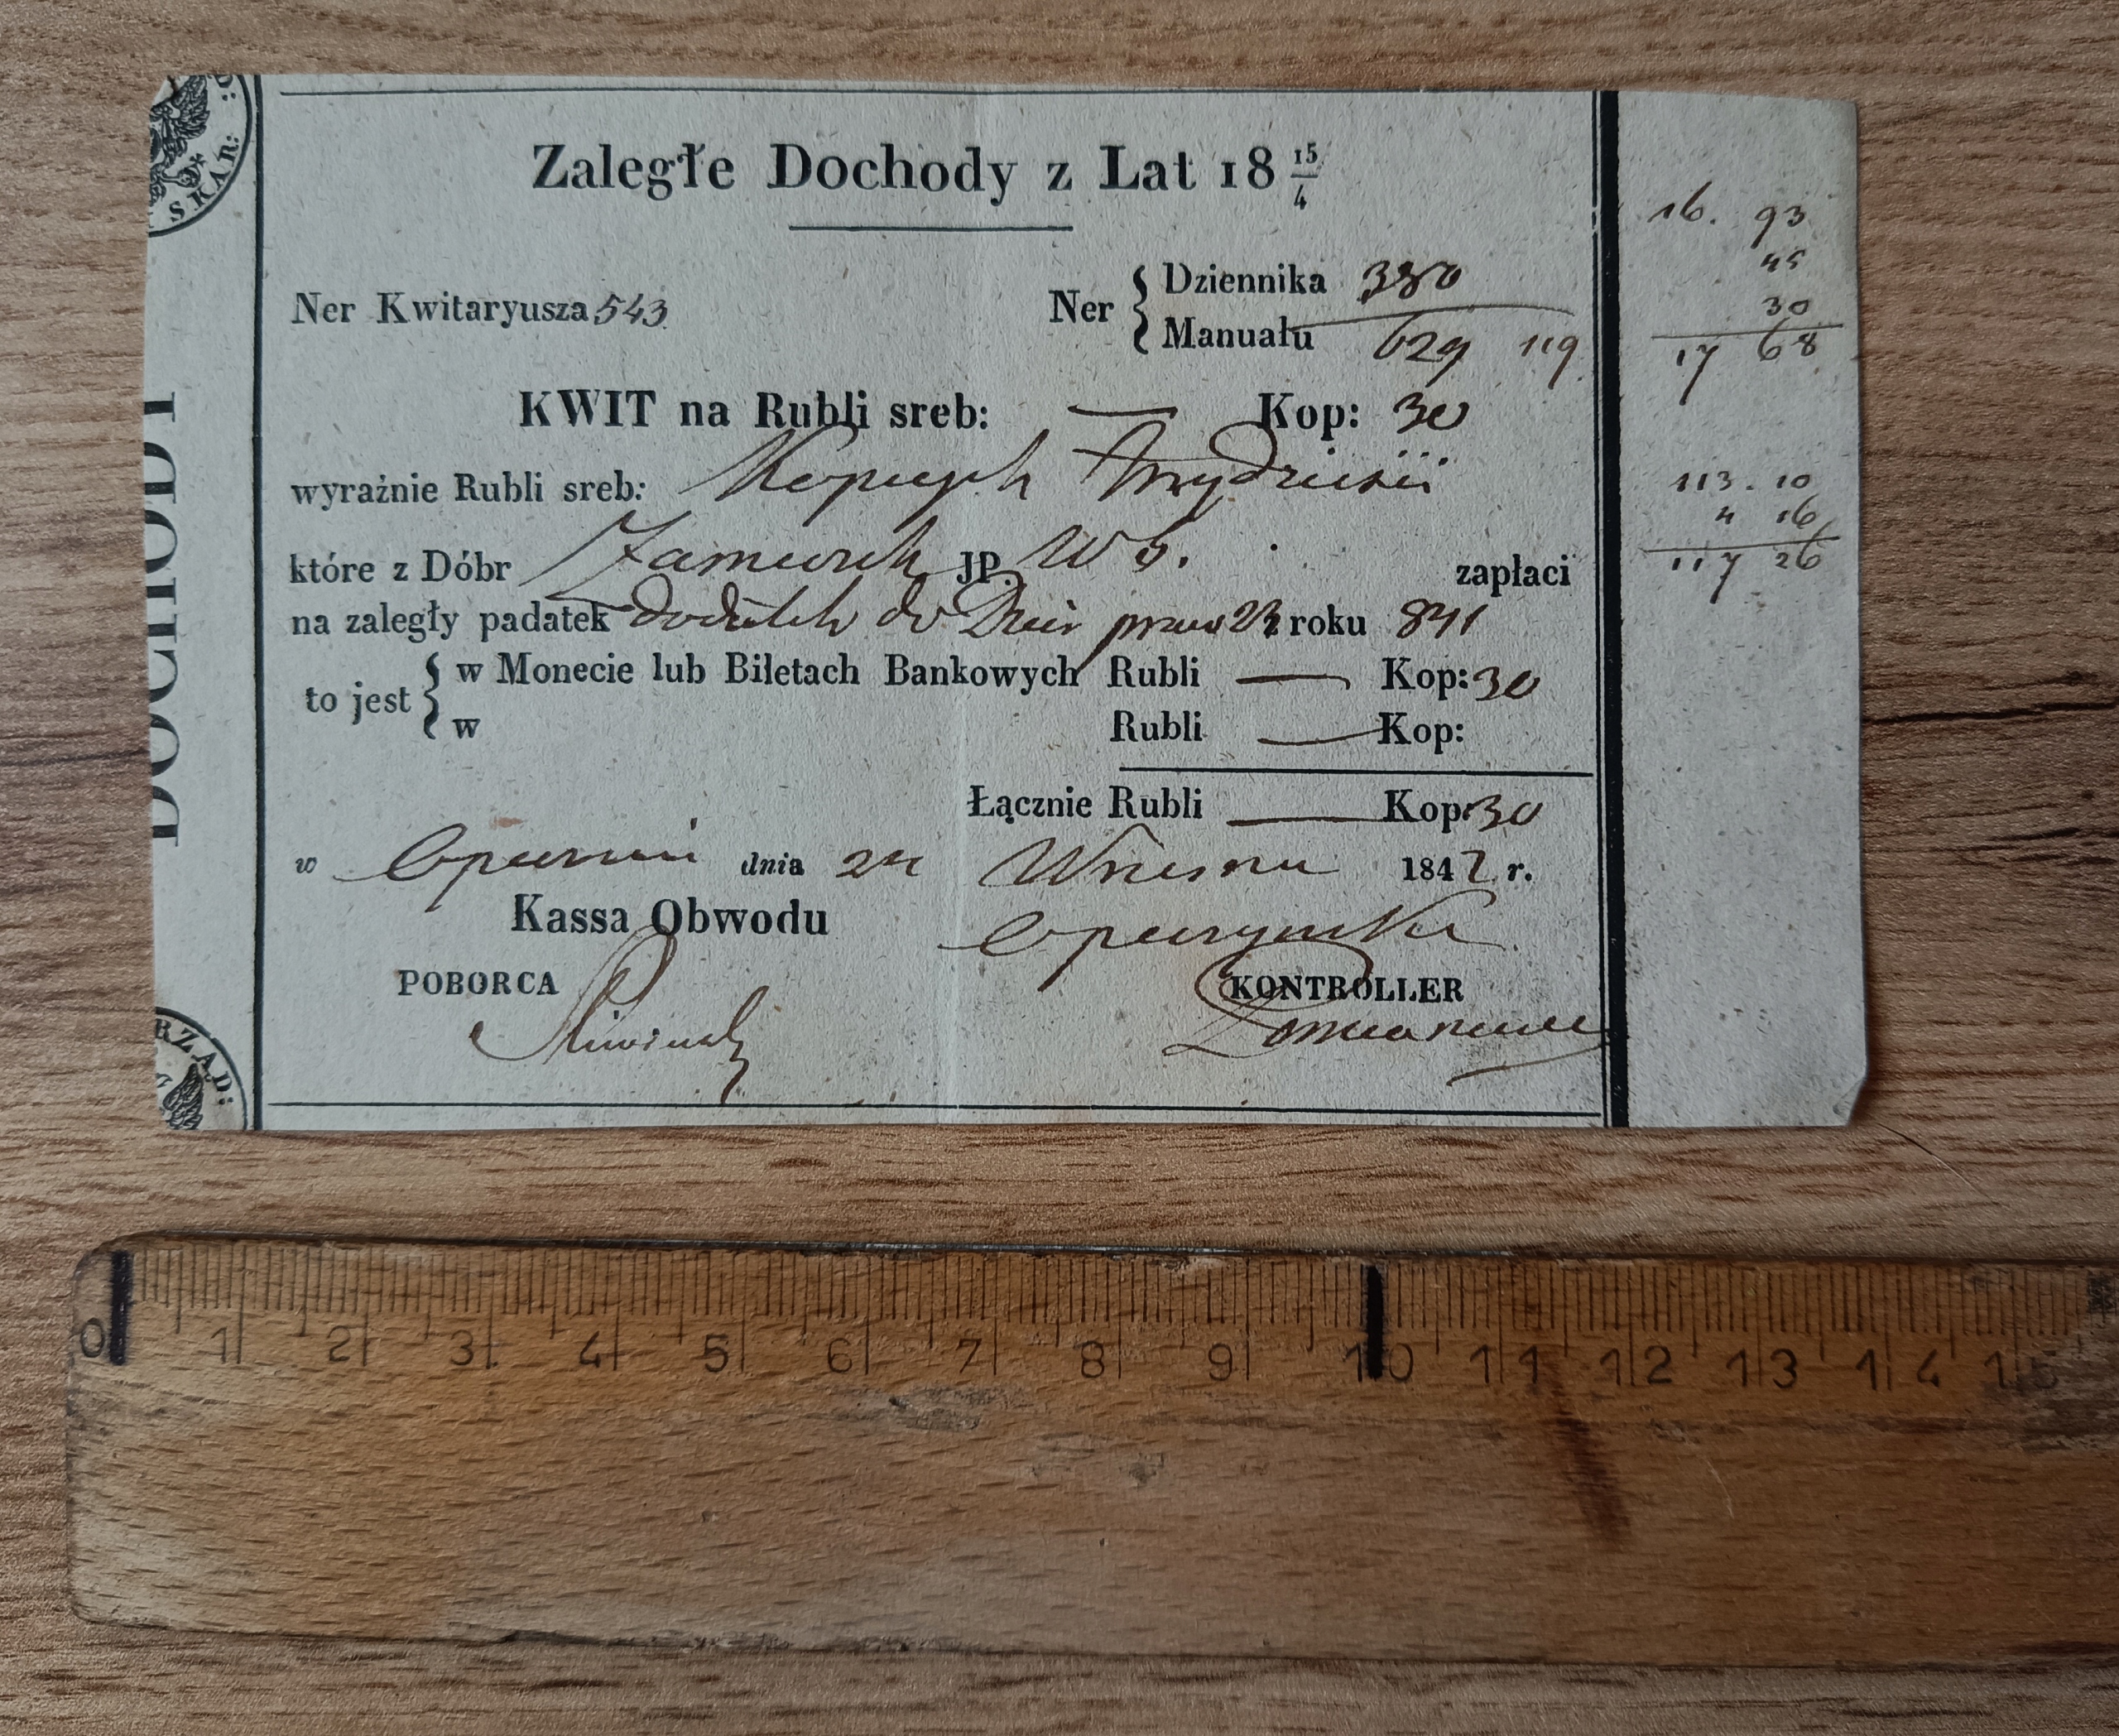 Zaległe Dochody z Lat 18 15/4
Ner Kwitaryusza 543
Ner { Dziennika 380
Manuału 629 119
KWIT na Rubli sreb: — Kop: 30
wyraźnie Rubli sreb: Kopiejek Trzydzieści
które z Dóbr JP. zapłaci
na zaległy padatek dodatek do roku 841
to jest { w Monecie lub Biletach Bankowych Rubli — Kop: 30
w Rubli — Kop:
Łącznie Rubli — Kop: 30
w Opocznie dnia 24 Wrześni 1842 r.
Kassa Obwodu Opoczyńskie
POBORCA
KONTROLLER
DOCHODY
SKAR:
RZĄD:
16. 93
45
30
17 68
113. 10
4 16
117 26
0 1 2 3 4 5 6 7 8 9 10 11 12 13 14 15